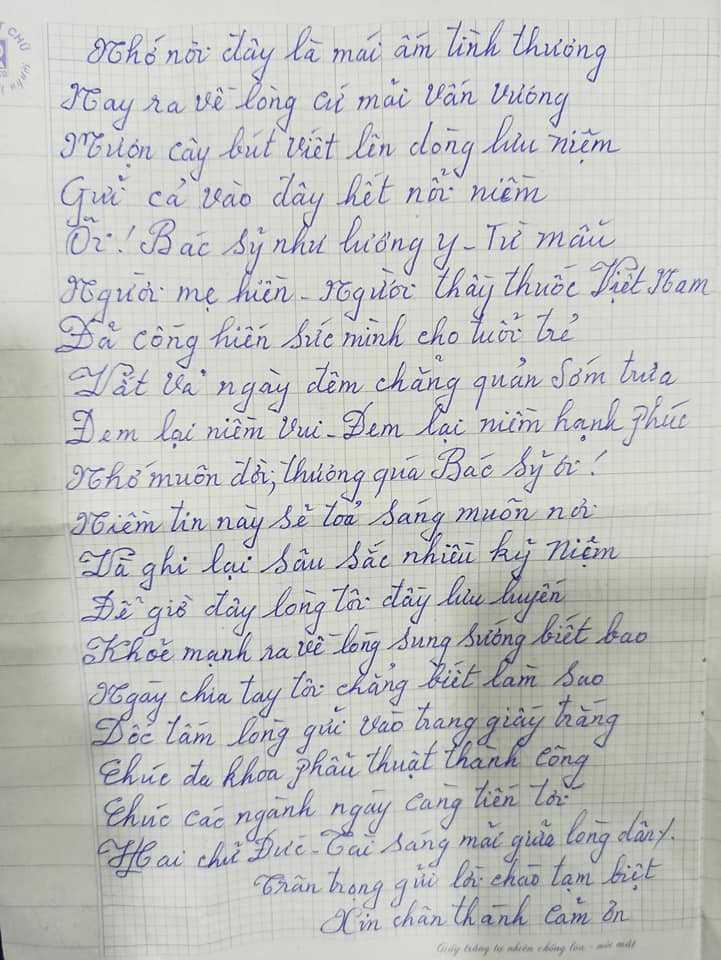 CHỮ
Nhớ nơi đây là mái ấm tình thương
Nay ra về lòng cứ mãi vấn vương
Mượn cây bút viết lên dòng lưu niệm
Gửi cả vào đây hết nỗi niềm
Ôi! Bác sỹ như lương y - Từ mẫu
Người mẹ hiền - Người thầy thuốc Việt Nam
Đã cống hiến sức mình cho tuổi trẻ
Vất vả ngày đêm chẳng quản sớm trưa
Đem lại niềm vui - Đem lại niềm hạnh phúc
Nhớ muôn đời, thương quá Bác sỹ ơi!
Niềm tin này sẽ toả sáng muôn nơi
Và ghi lại sâu sắc nhiều kỷ niệm
Để giờ đây lòng tôi đầy lưu luyến
Khoẻ mạnh ra về lòng sung sướng biết bao
Ngày chia tay tôi chẳng biết làm sao
Dốc tấm lòng gửi vào trang giấy trắng
Chúc đa khoa phẫu thuật thành công
Chúc các ngành ngày càng tiến tới
Hai chữ Đức - Tài sáng mãi giữa lòng dân/.
Trân trọng gửi lời chào tạm biệt
Xin chân thành cảm ơn
Giấy trắng tự nhiên chống lóa - mỏi mắt